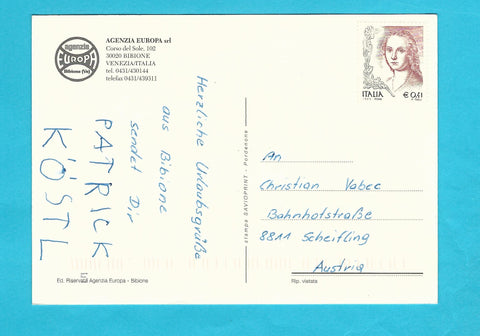 agenzia
EUROPA
Bibione (Ve)
AGENZIA EUROPA srl
Corso del Sole, 102
30020 BIBIONE
VENEZIA/ITALIA
tel. 0431/430144
telefax 0431/439311
Herzliche Urlaubsgrüße
aus Bibione
sendet Dir
PATRICK
KÖSTL
Ed. Riservata Agenzia Europa - Bibione
stampa SAVIOPRINT - Pordenone
ITALIA
€ 0,41
An
Christian Vabec
Bahnhofstraße
8811 Scheifling
Austria
Rip. vietata